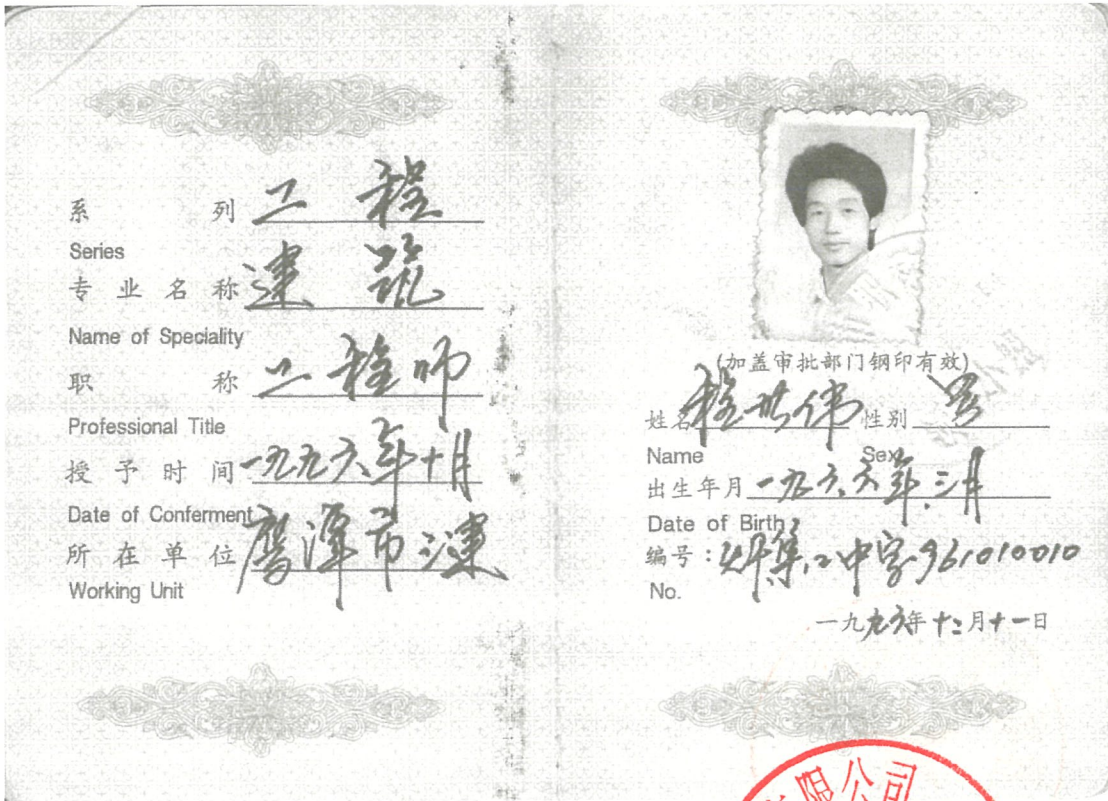 系列 工程
Series
专业名称 建筑
Name of Speciality
职称 工程师
Professional Title
授予时间 一九九六年十月
Date of Conferment
所在单位 鹰潭市二建
Working Unit
(加盖审批部门钢印有效)
姓名 程世伟 性别 男
Name Sex
出生年月 一九六六年三月
Date of Birth
编号: 中字961010010
No.
一九九六年十二月十一日
限公司